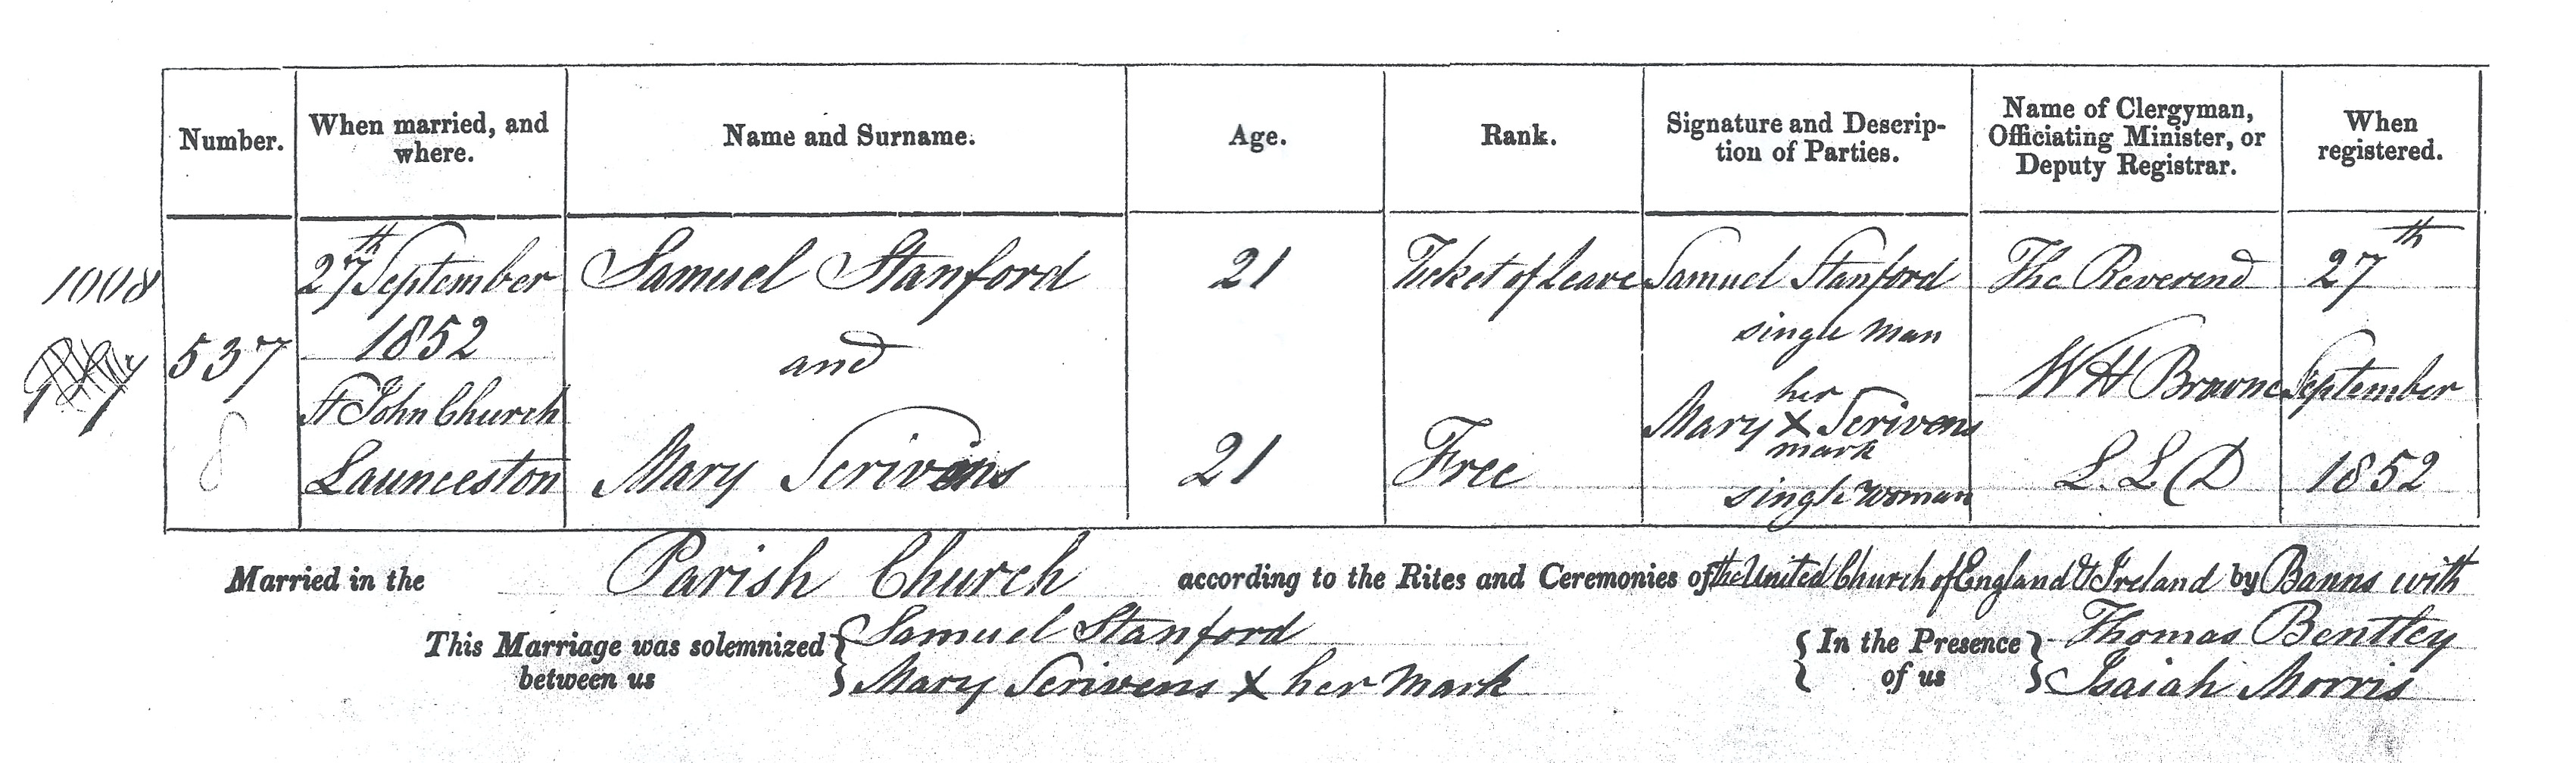 Number.
When married, and where.
Name and Surname.
Age.
Rank.
Signature and Descrip-
tion of Parties.
Name of Clergyman,
Officiating Minister, or
Deputy Registrar.
When
registered.
1008
537
8
27th September
1852
St John Church
Launceston
Samuel Stanford
and
Mary Scrivens
21
21
Ticket of Leave
Free
Samuel Stanford
single man
her
Mary X Scrivens
mark
single woman
The Reverend
W H Browne
L. L. D
27th
September
1852
Married in the Parish Church according to the Rites and Ceremonies of the United Church of England & Ireland by Banns with
This Marriage was solemnized between us
Samuel Stanford
Mary Scrivens X her mark
In the Presence of us
Thomas Bentley
Isaiah Morris